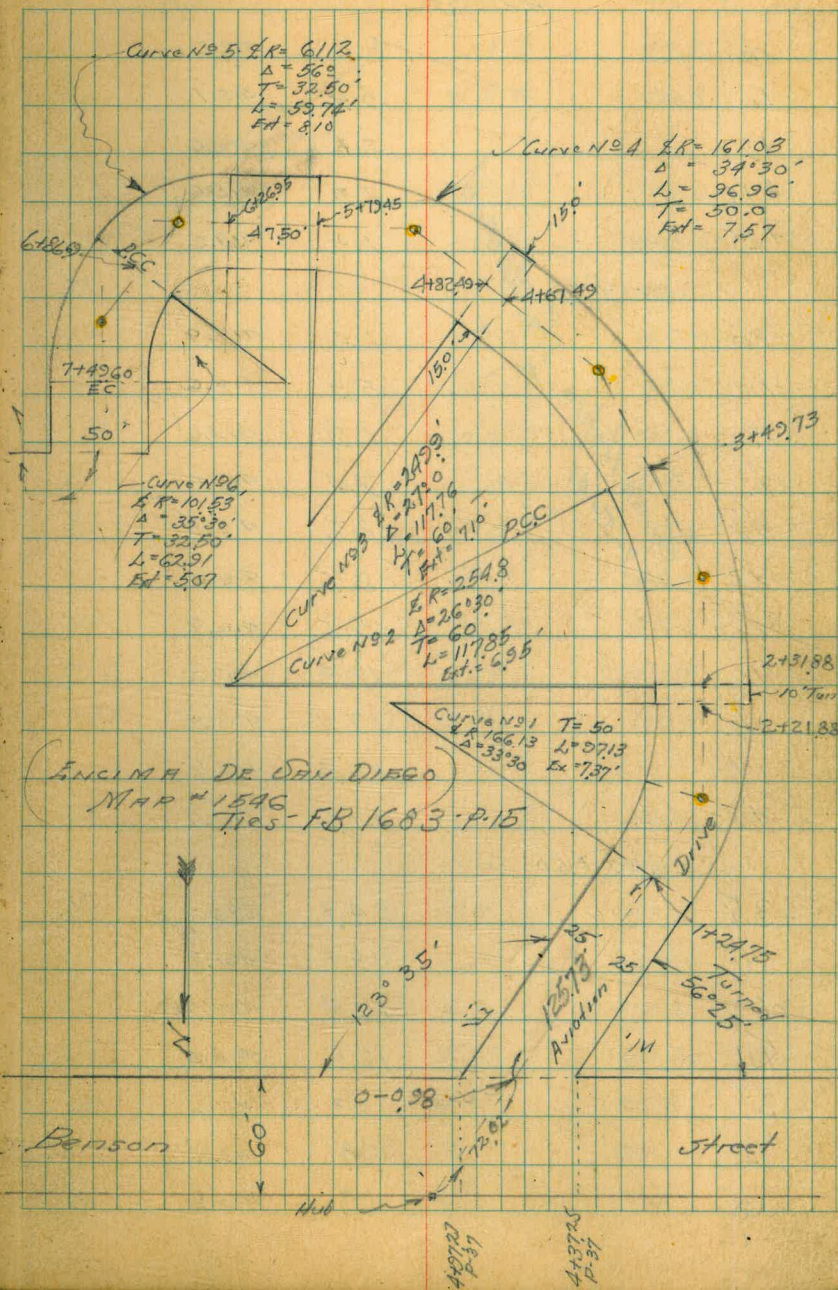 Curve Nº 5 ℄ R= 61.12
Δ = 56º
T= 32.50'
L= 59.74'
Ext= 8.10
Curve Nº 4 ℄ R= 161.03
Δ = 34°30'
L= 96.96'
T= 50.0
Ext= 7.57
15.0'
6+26.95
5+79.45
47.50'
6+86.69
P.CC
4+82.49
4+67.49
15.0'
7+49.60
EC
50'
3+49.73
Curve Nº 6
℄ R=101.53'
Δ = 35°30'
T= 32.50'
L= 62.91
Ext= 5.07
Curve Nº 3 ℄ R= 249.9'
Δ= 27°0'
L= 117.76
T= 60'
Ext= 7.10'
P.C.C
Curve Nº 2 ℄ R= 254.8
Δ= 26°30'
T= 60
L= 117.85
Ext.= 6.95'
2+31.88
10' Tan
2+21.88
Curve Nº 1 T= 50'
℄ R 166.13 L= 97.13
Δ = 33°30 Ex= 7.37'
ENCIMA DE SAN DIEGO
MAP # 1546
Ties - FB 1683 - P.15
Drive
1+24.75
Turned
56°25'
25'
25
125.73
Aviation
123° 35'
N
0-0.98
72.02
60'
Benson
Street
Hub
P-37
P-37